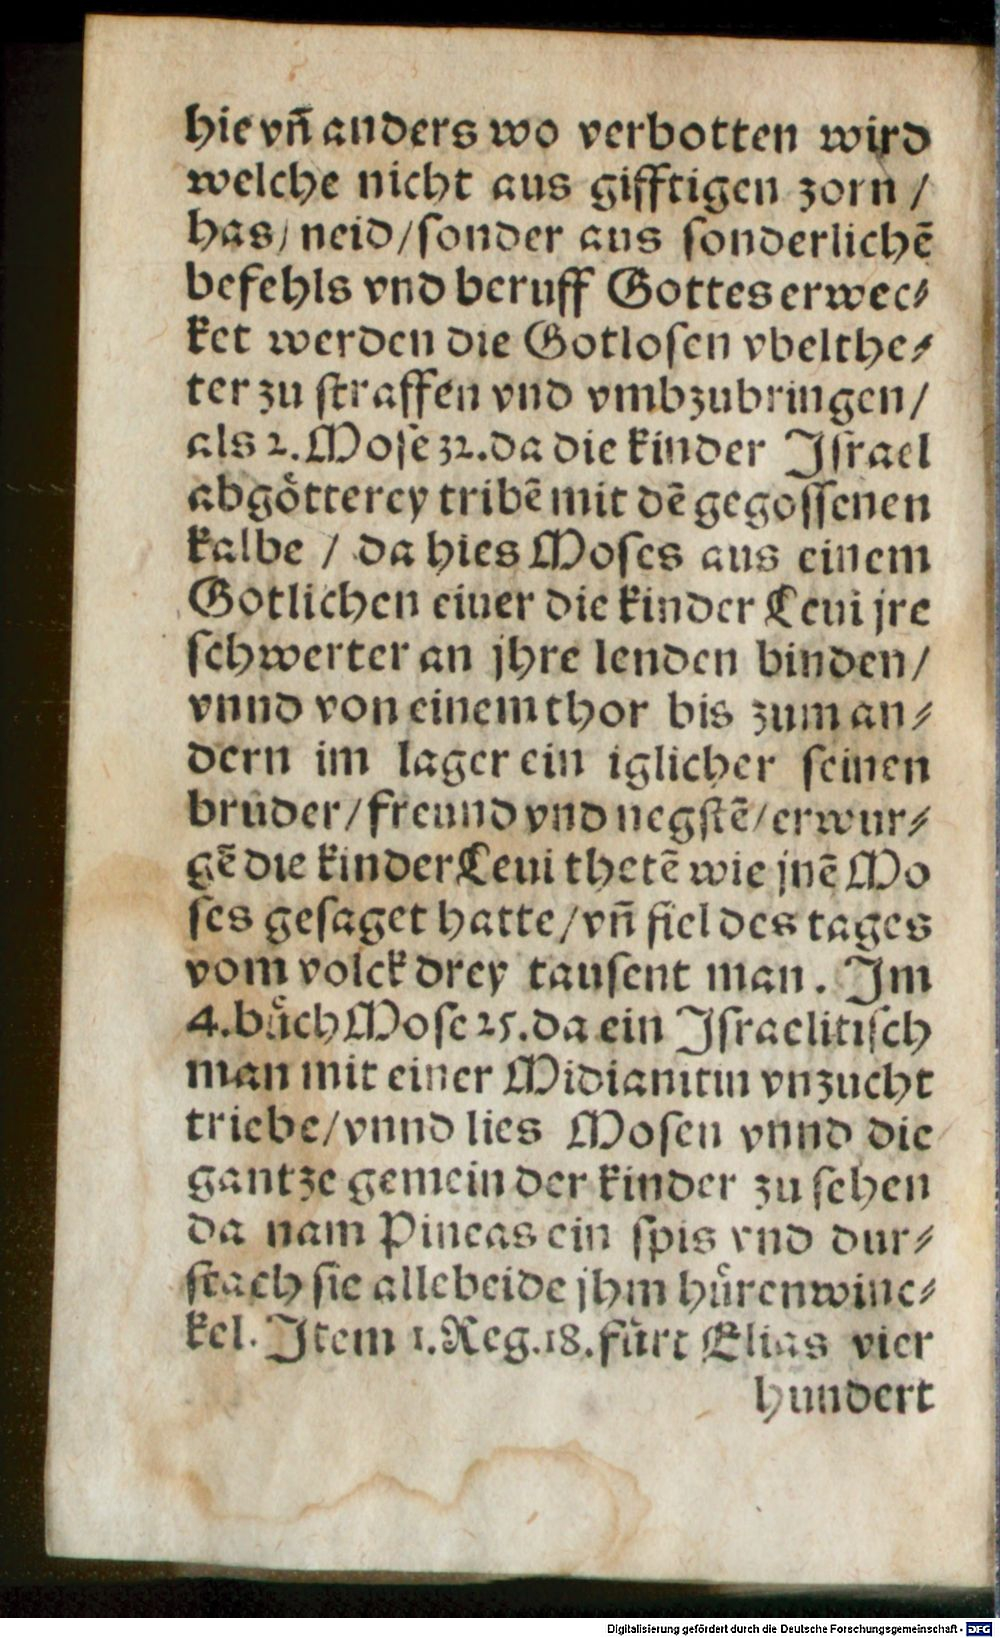 hie vñ anders wo verbotten wird
welche nicht aus gifftigen zorn /
has / neid / sonder aus sonderlichē
befehls vnd beruff Gottes erwec⸗
ket werden die Gotlosen vbelthe⸗
ter zu straffen vnd vmbzubringen /
als 2. Mose 32. da die kinder Israel
abgötterey tribē mit dē gegossenen
kalbe / da hies Moses aus einem
Gotlichen eiuer die kinder Leui jre
schwerter an jhre lenden binden /
vnnd von einem thor bis zum an⸗
dern im lager ein iglicher seinen
bruder / freund vnd negstē / erwur⸗
gē die kinder Leui thetē wie jnē Mo
ses gesaget hatte / vñ fiel des tages
vom volck drey tausent man. Im
4. bůch Mose 25. da ein Israelitisch
man mit einer Midianitin vnzucht
triebe / vnnd lies Mosen vnnd die
gantze gemein der kinder zu sehen
da nam Pineas ein spis vnd dur⸗
stach sie alle beide jhm hůrenwinc⸗
kel. Item 1. Reg. 18. fürt Elias vier
hundert
Digitalisierung gefördert durch die Deutsche Forschungsgemeinschaft - DFG